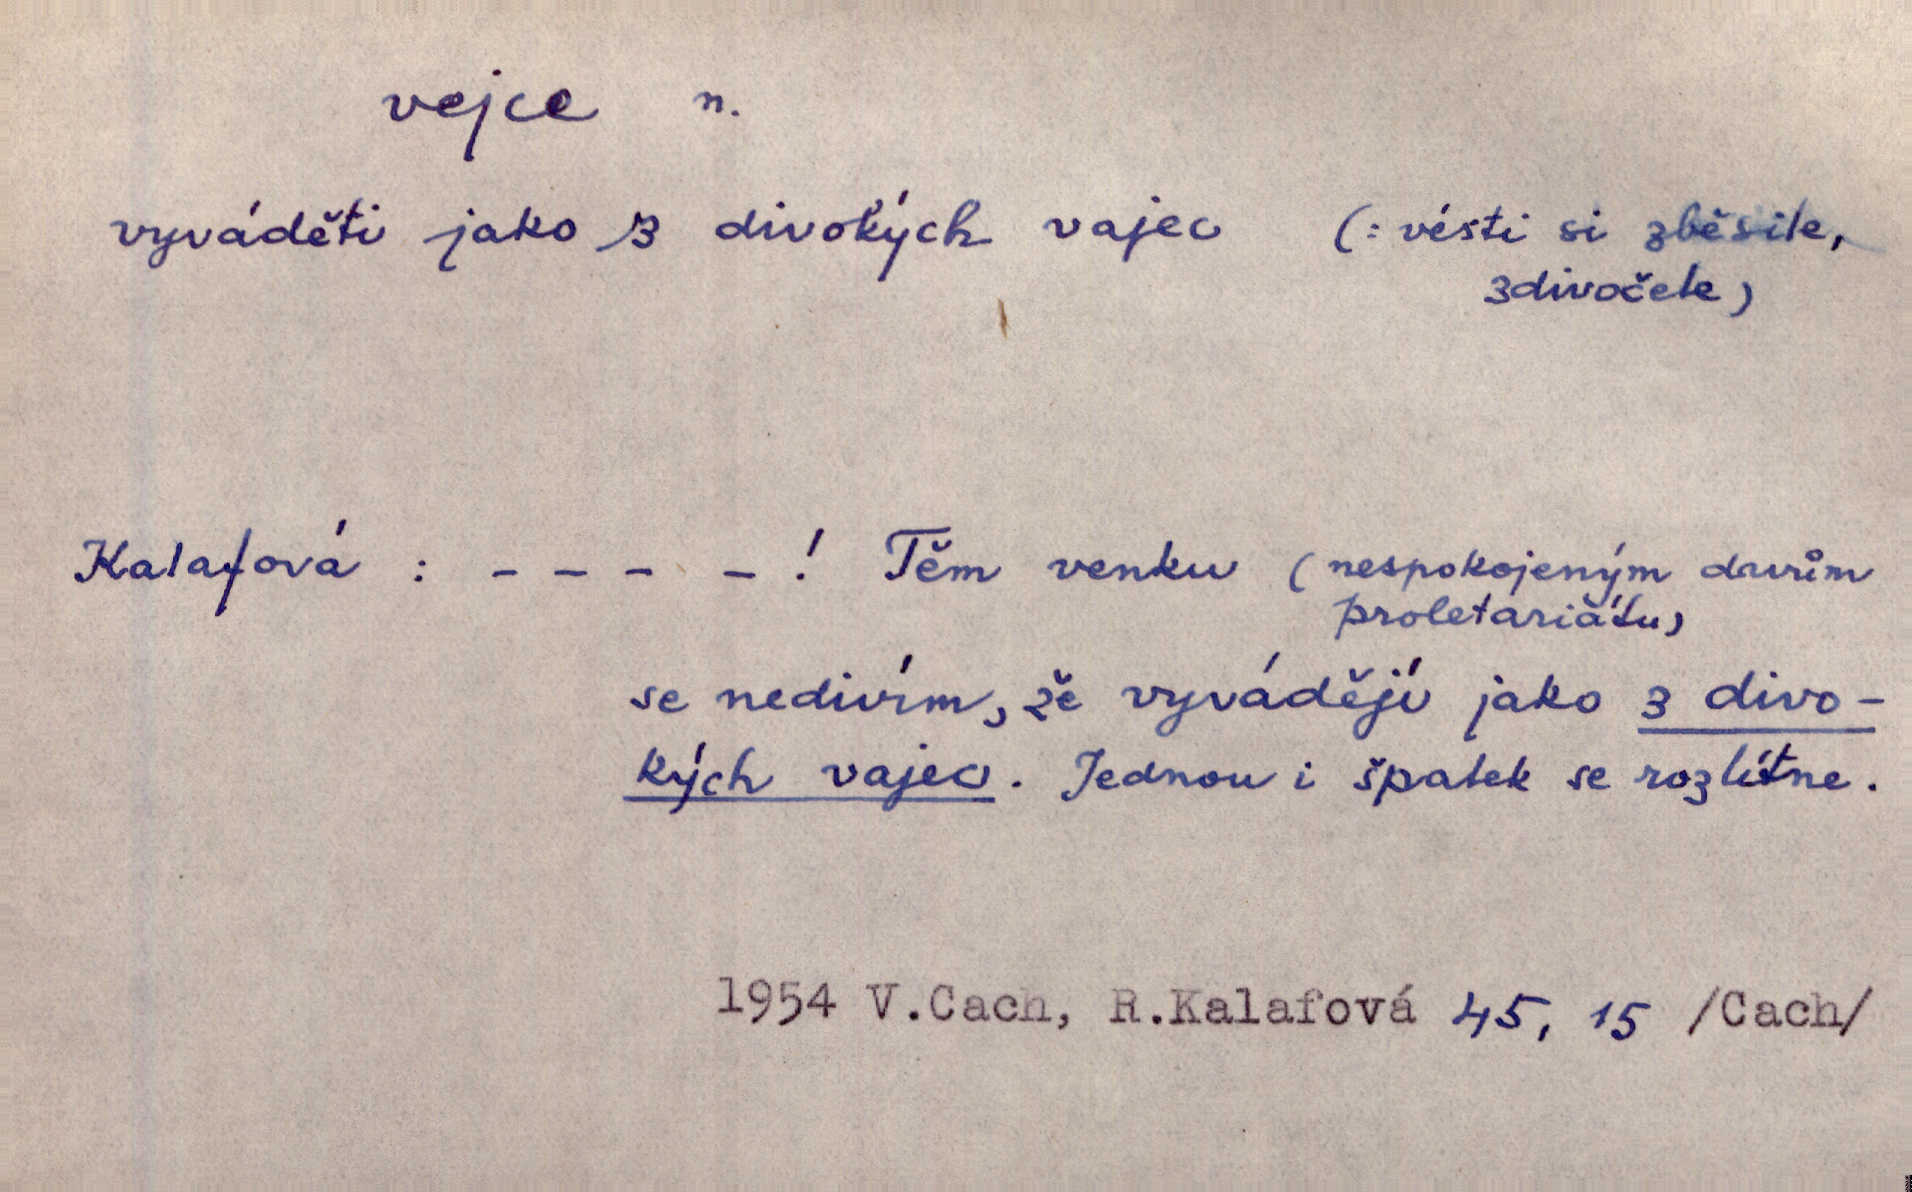 vejce n.
vyváděti jako z divokých vajec (: vésti si zběsile,
zdivočele)
Kalafová : – – – – ! Těm venku (nespokojeným davům
proletariátu)
se nedivím, že vyvádějí jako z divo-
kých vajec. Jednou i špalek se rozlítne.
1954 V.Cach, R.Kalafová 45, 15 /Cach/